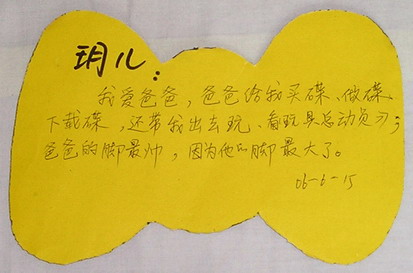 玥儿：
我爱爸爸，爸爸给我买碟、做碟
下载碟，还带我出去玩、看玩具总动员了；
爸爸的脚最帅，因为他的脚最大了。
06-6-15